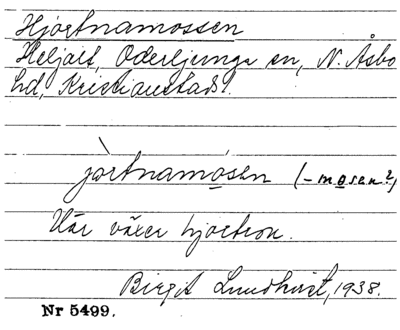 Hjortnamossen
Heljalt, Oderljunga sn, N. Åsbo
hd, Kristianstad l.
jòrtnamo̲sen (-mo̲sen?)
Här växer hjortron.
Birgit Lundkvist, 1938.
Nr 5499.